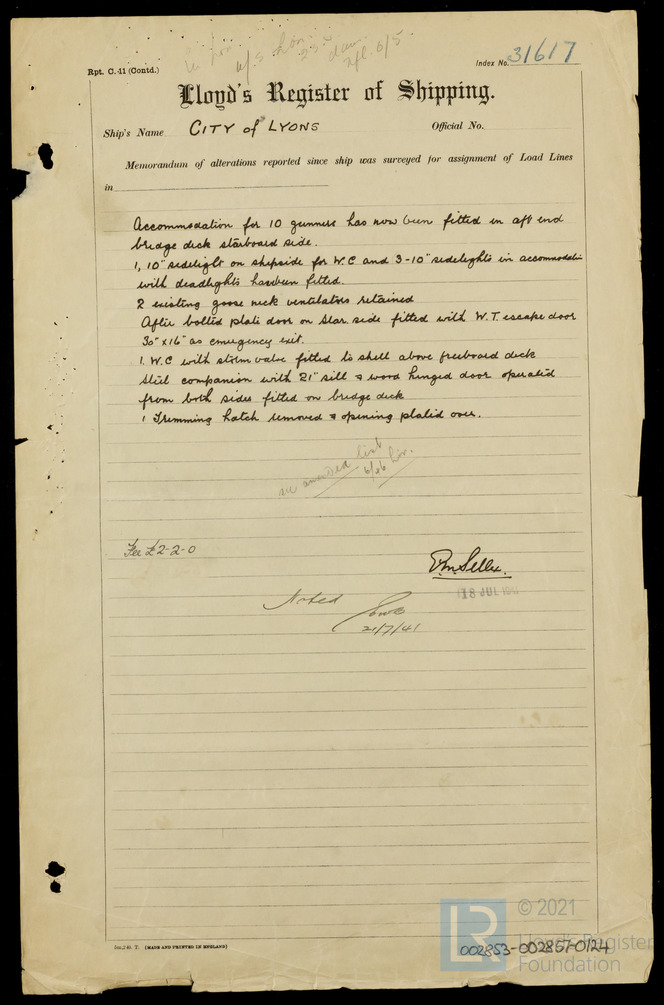 Rpt. C. 11 (Contd.)
Index No. 31617
Lloyd's Register of Shipping.
Ship's Name CITY of LYONS Official No.
Memorandum of alterations reported since ship was surveyed for assignment of Load Lines
in
Accommodation for 10 gunners has now been fitted in aft end
bridge deck starboard side.
1, 10" sidelight on shipside for W.C and 3-10" sidelights in accommodation
with deadlights has been fitted.
2 existing goose neck ventilators retained
After bolted plate door on star. side fitted with W.T. escape door
30" x 16" as emergency exit.
1. W.C with storm valve fitted to shell above freeboard deck
Steel companion with 21" sill & wood hinged door operated
from both sides fitted on bridge deck
1 Trimming hatch removed & opening plated over.
see amended list
Fee £2-2-0
18 JUL
Noted
21/7/41
(MADE AND PRINTED IN ENGLAND)
© 2021
LR
Lloyd's Register
Foundation
002853-002857-0124